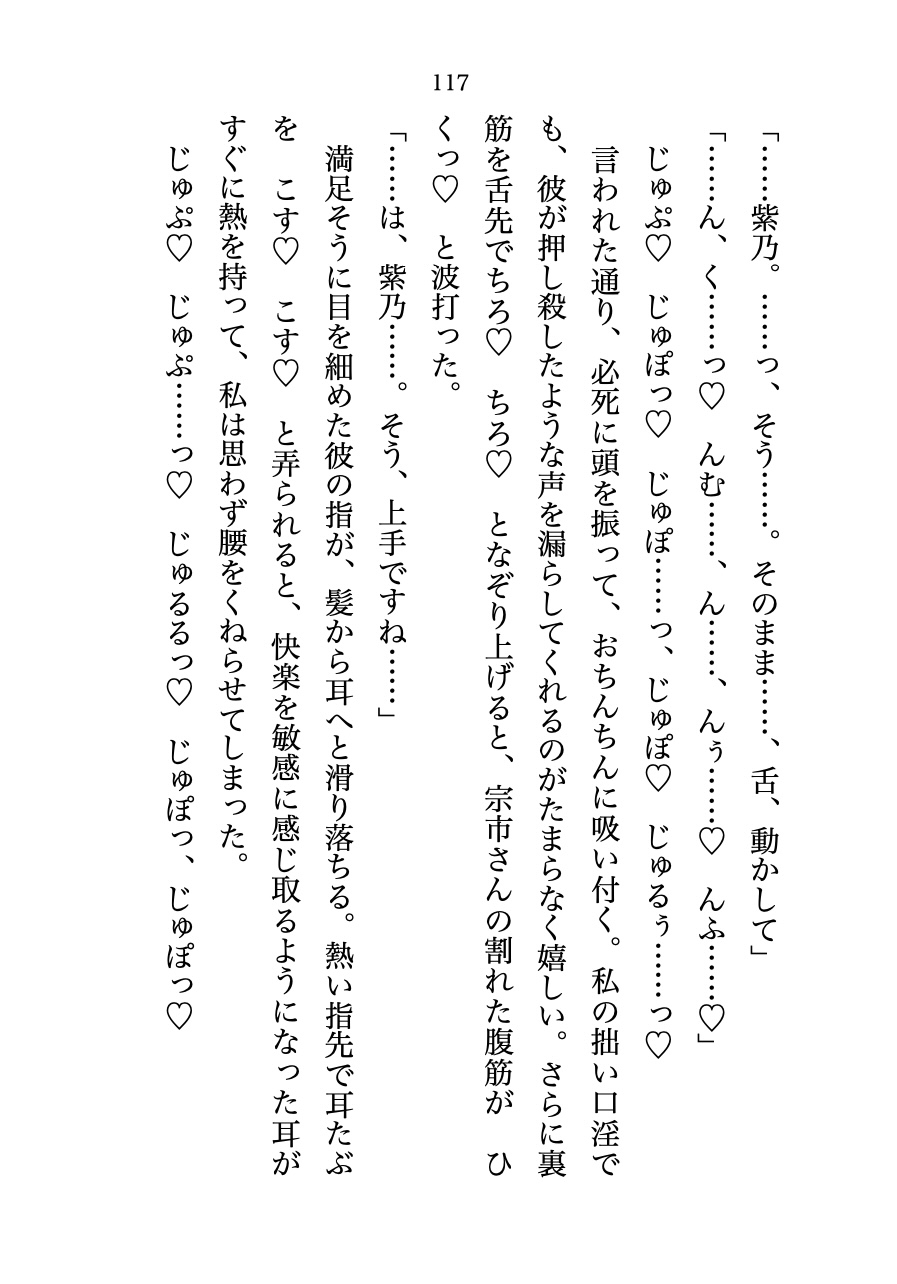 117
「……紫乃。……っ、そう……。そのまま……、舌、動かして」
「……ん、く……っ♡　んむ……、ん……、んぅ……♡　んふ……♡」
　じゅぷ♡　じゅぽっ♡　じゅぽ……っ、じゅぽ♡　じゅるぅ……っ♡
　言われた通り、必死に頭を振って、おちんちんに吸い付く。私の拙い口淫で
も、彼が押し殺したような声を漏らしてくれるのがたまらなく嬉しい。さらに裏
筋を舌先でちろ♡　ちろ♡　となぞり上げると、宗市さんの割れた腹筋が　ひ
くっ♡　と波打った。
「……は、紫乃……。そう、上手ですね……」
　満足そうに目を細めた彼の指が、髪から耳へと滑り落ちる。熱い指先で耳たぶ
を　こす♡　こす♡　と弄られると、快楽を敏感に感じ取るようになった耳が
すぐに熱を持って、私は思わず腰をくねらせてしまった。
　じゅぷ♡　じゅぷ……っ♡　じゅるるっ♡　じゅぽっ、じゅぽっ♡